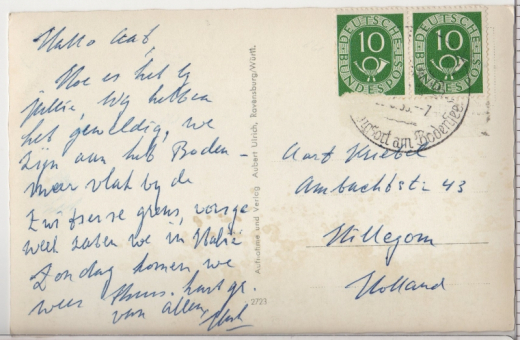 Hallo Aat,
Hoe is het bij
jullie, wij hebben
het geweldig, we
zijn aan het Boden-
meer vlak bij de
Zwitserse grens, vorige
week zaten we in Italië
Zondag komen we
weer thuis. hart. gr.
van allen,
Aufnahme und Verlag Aubert Ulrich, Ravensburg/Württ.
2723
DEUTSCHE BUNDESPOST
10
DEUTSCHE BUNDESPOST
10
am Bodensee
Aart
Ambachtstr 43
Hillegom
Holland